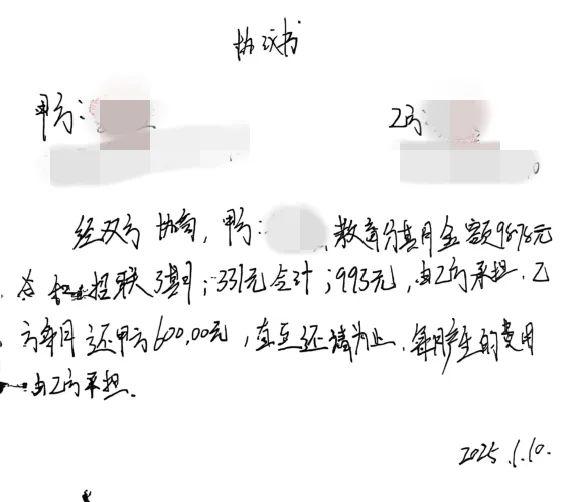 协议书
甲方： 乙方：
经双方协商，甲方： 分期金额9878元
招联3期；331元合计；993元，由乙方承担．乙
方每月还甲方600.00元，直至还清为止．每月产生的费用
由乙方承担．
2025.1.10.